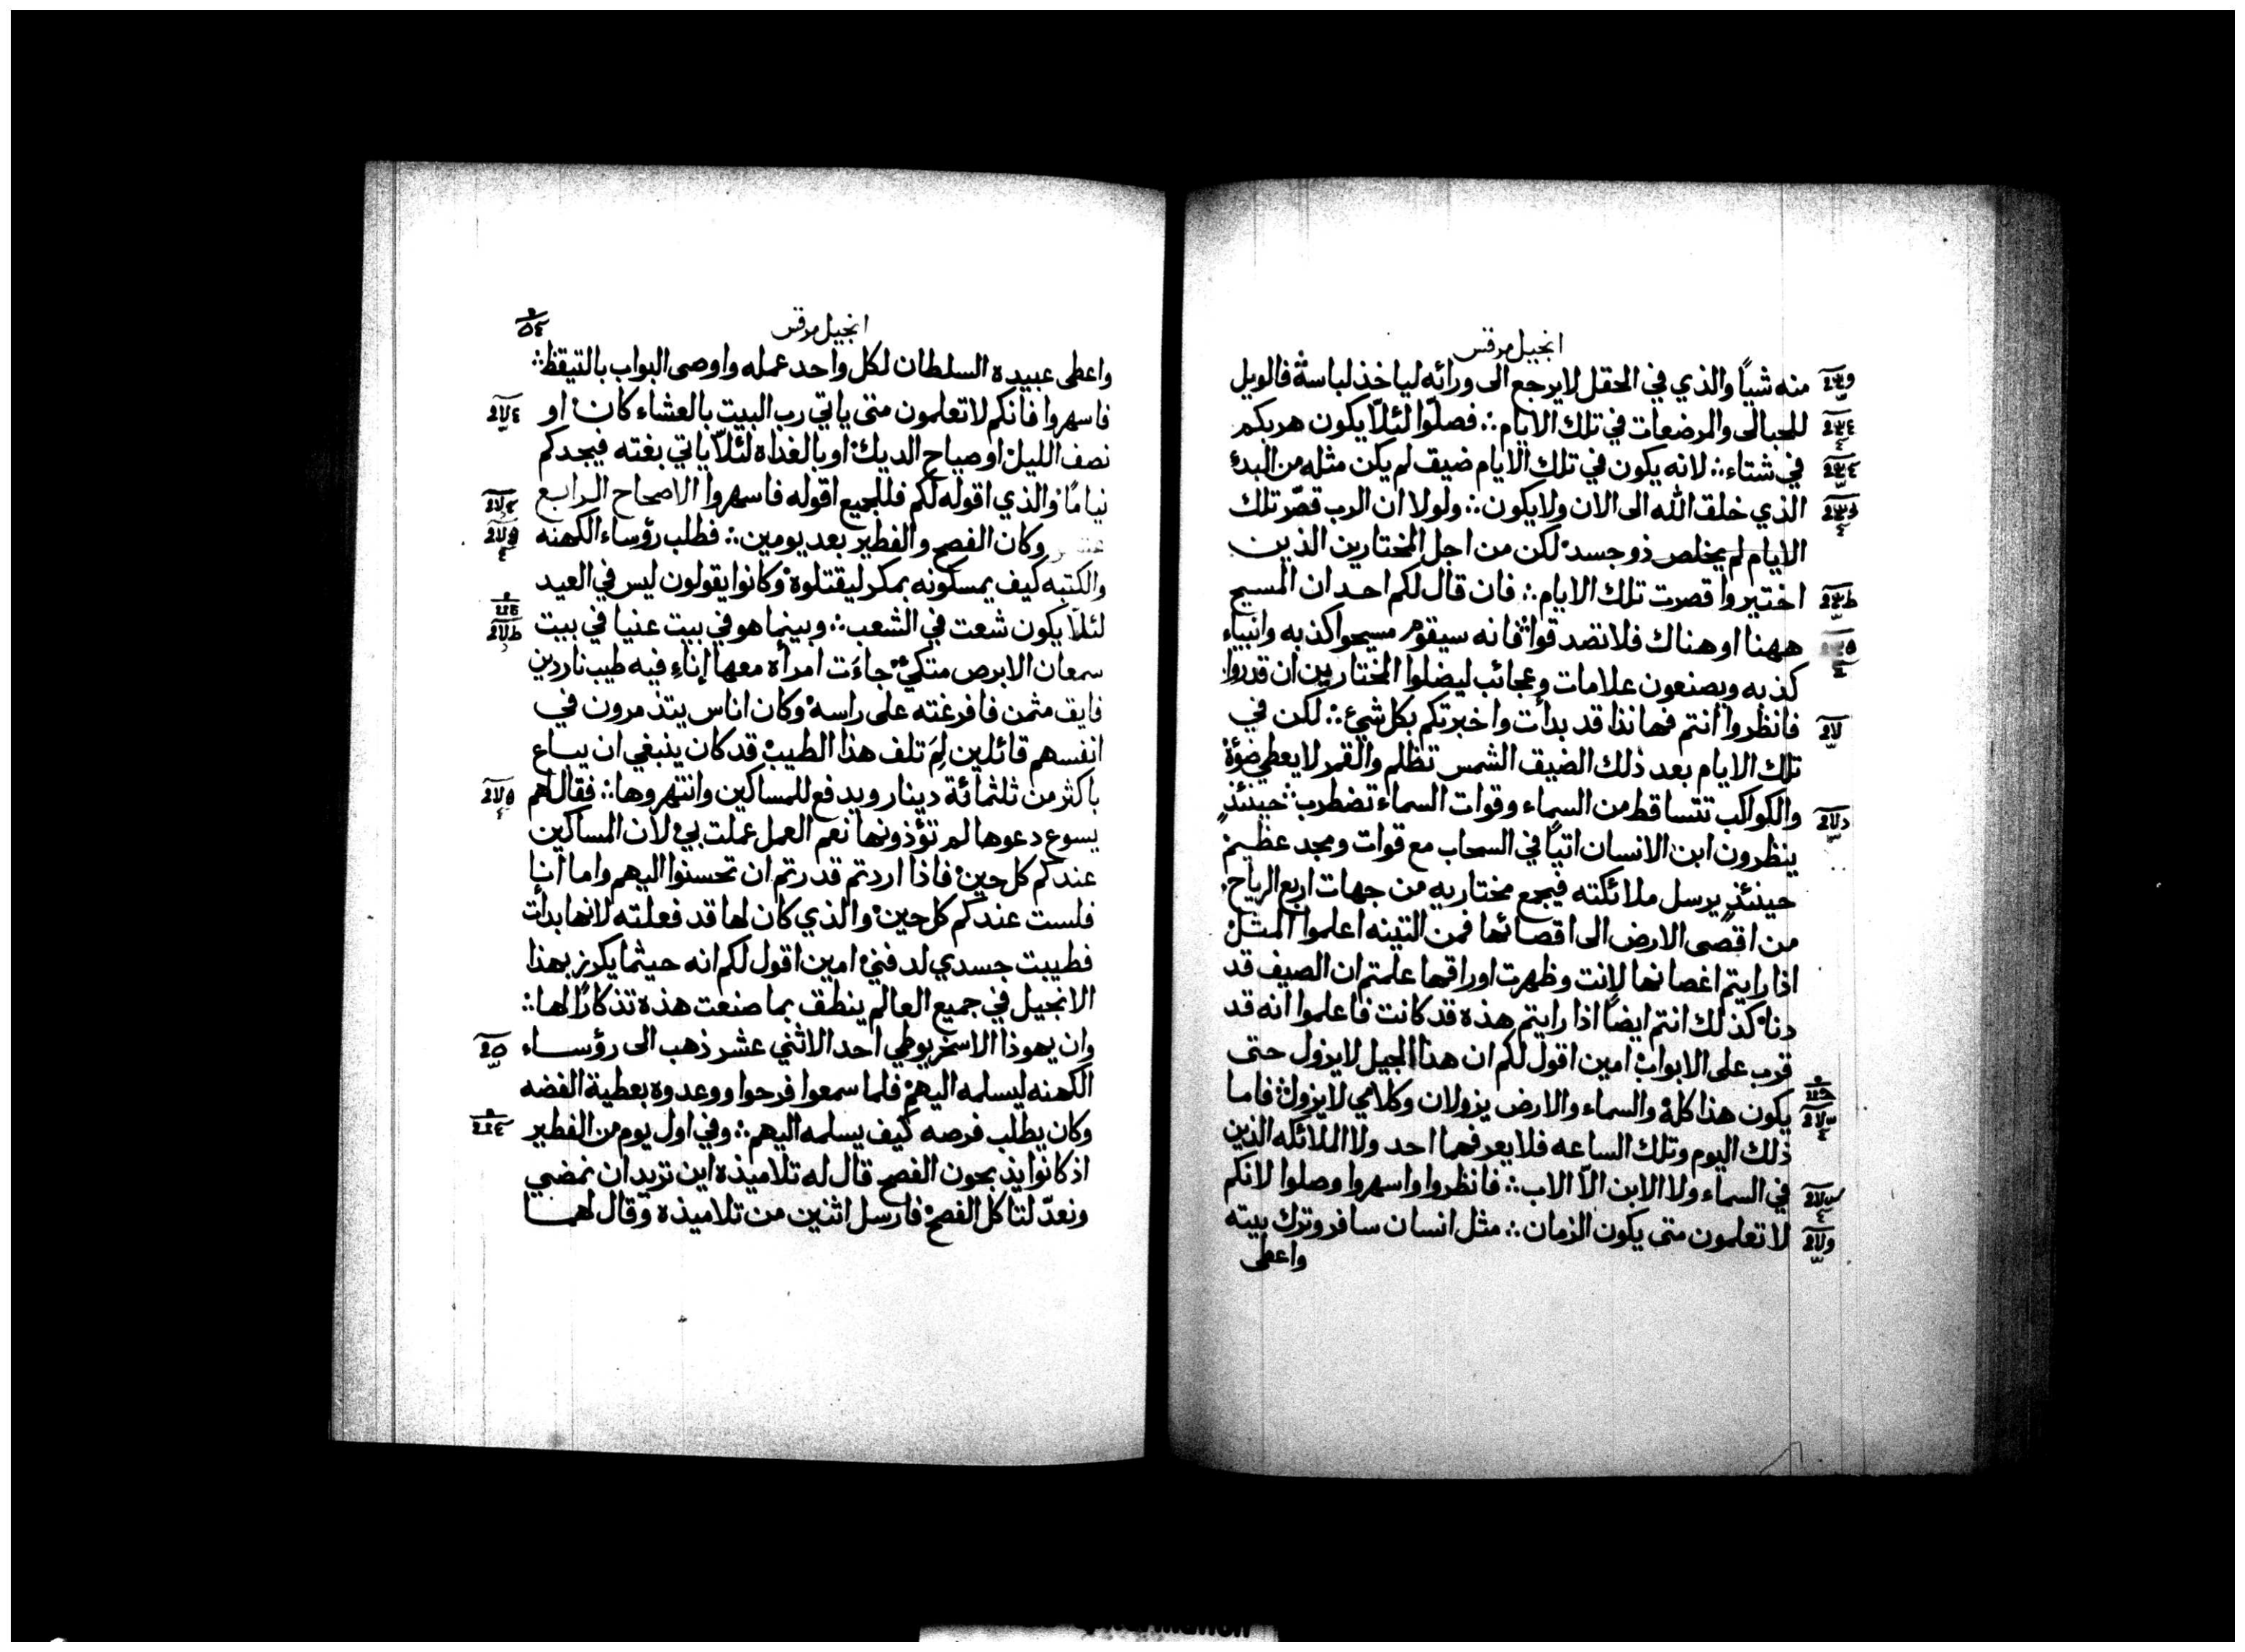 انجيل مرقس
منه شياً والذي في الحقل لا يرجع الى ورائه لياخذ لباسه فالويل
للحبالى والمرضعات في تلك الايام ؞ فصلّوا لئلّا يكون هربكم
في شتاء ؞ لانه يكون في تلك الايام ضيق لم يكن مثله من البدءِ
الذي خلق الله الى الان ولا يكون ؞ ولولا ان الرب قصّر تلك
الايام لم يخلص ذو جسد لكن من اجل المختارين الذين
اختيروا قصرت تلك الايام ؞ فان قال لكم احد ان المسيح
ههنا او هناك فلا تصدقوا فانه سيقوم مسيحوا كذبه وانبياء
كذبه ويصنعون علامات وعجائب ليضلوا المختارين ان قدروا
فانظروا انتم فهانذا قد بدأت واخبرتكم بكل شيء ؞ لكن في
تلك الايام بعد ذلك الضيق الشمس تظلم والقمر لا يعطي ضؤهُ
والكواكب تتساقط من السماء وقوات السماء تضطرب ؞ حينئذٍ
ينظرون ابن الانسان اتياً في السحاب مع قوات ومجد عظيم
حينئذٍ يرسل ملائكته فيجمع مختاريه من جهات اربع الرياح
من اقصى الارض الى اقصائها فمن التينه اعلموا المثل
اذا رايتم اغصانها لانت وظهرت اوراقها علمتم ان الصيف قد
دنا كذلك انتم ايضاً اذا رايتم هذه قد كانت فاعلموا انه قد
قرب على الابواب امين اقول لكم ان هذا الجيل لا يزول حتى
يكون هذا كله والسماء والارض يزولان وكلامي لا يزول فاما
ذلك اليوم وتلك الساعه فلا يعرفهما احد ولا الملائكه الذين
في السماء ولا الابن الاّ الاب ؞ فانظروا واسهروا وصلوا لانكم
لا تعلمون متى يكون الزمان ؞ مثل انسان سافر وترك بيته
واعطى
انجيل مرقس
واعطى عبيده السلطان لكل واحد عمله واوصى البواب بالتيقظ ؞
فاسهروا فانكم لا تعلمون متى ياتي رب البيت بالعشاء كان او
نصف الليل او صياح الديك او بالغداه لئلاّ ياتي بغته فيجدكم
نياماً والذي اقوله لكم فللجميع اقوله فاسهروا الاصحاح الرابع
عشر وكان الفصح والفطير بعد يومين ؞ فطلب رؤساء الكهنه
والكتبه كيف يمسكونه بمكر ليقتلوه وكانوا يقولون ليس في العيد
لئلاّ يكون شعث في الشعب ؞ وبينما هو في بيت عنيا في بيت
سمعان الابرص متكئ جاءَت امرأة معها إناء فيه طيب ناردين
فايق مثمن فافرغته على راسه وكان اناس يتذمرون في
انفسهم قائلين لِمَ تلف هذا الطيب قد كان ينبغي ان يباع
باكثر من ثلثمائة دينار ويدفع للمساكين وانتهروها ؞ فقال لهم
يسوع دعوها لم تؤذونها نعم العمل عملت بي لان المساكين
عندكم كل حين فاذا اردتم قدرتم ان تحسنوا اليهم واما انا
فلست عندكم كل حين والذي كان لها قد فعلته لانها بدأت
فطيبت جسدي لدفني امين اقول لكم انه حيثما يكرز بهذا
الانجيل في جميع العالم ينطق بما صنعت هذه تذكاراً لها ؞
وان يهوذا الاسخريوطي احد الاثني عشر ذهب الى رؤساء
الكهنه ليسلمه اليهم فلما سمعوا فرحوا ووعدوه بعطية الفضه
وكان يطلب فرصه كيف يسلمه اليهم ؞ وفي اول يوم من الفطير
اذ كانوا يذبحون الفصح قال له تلاميذه اين تريد ان نمضي
ونعدّ لتاكل الفصح فارسل اثنين من تلاميذه وقال لهما